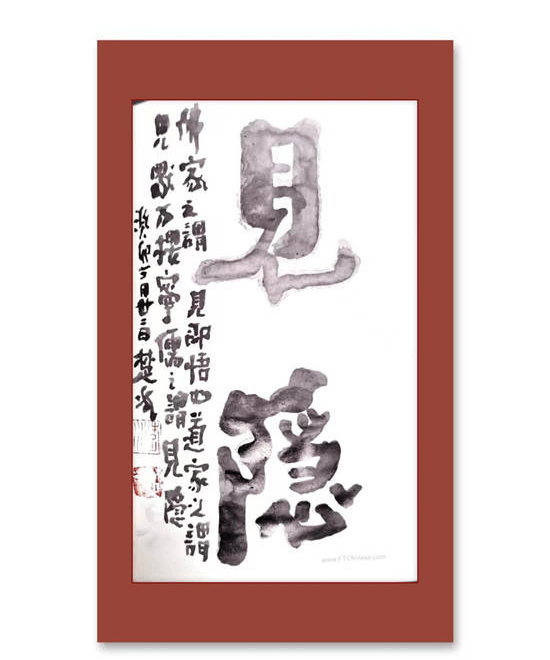 見
隐
佛家之謂見即悟也道家之謂
見獨乃攖寧儒之謂見隐
癸卯 月廿三日楚
www.FTChinese.com